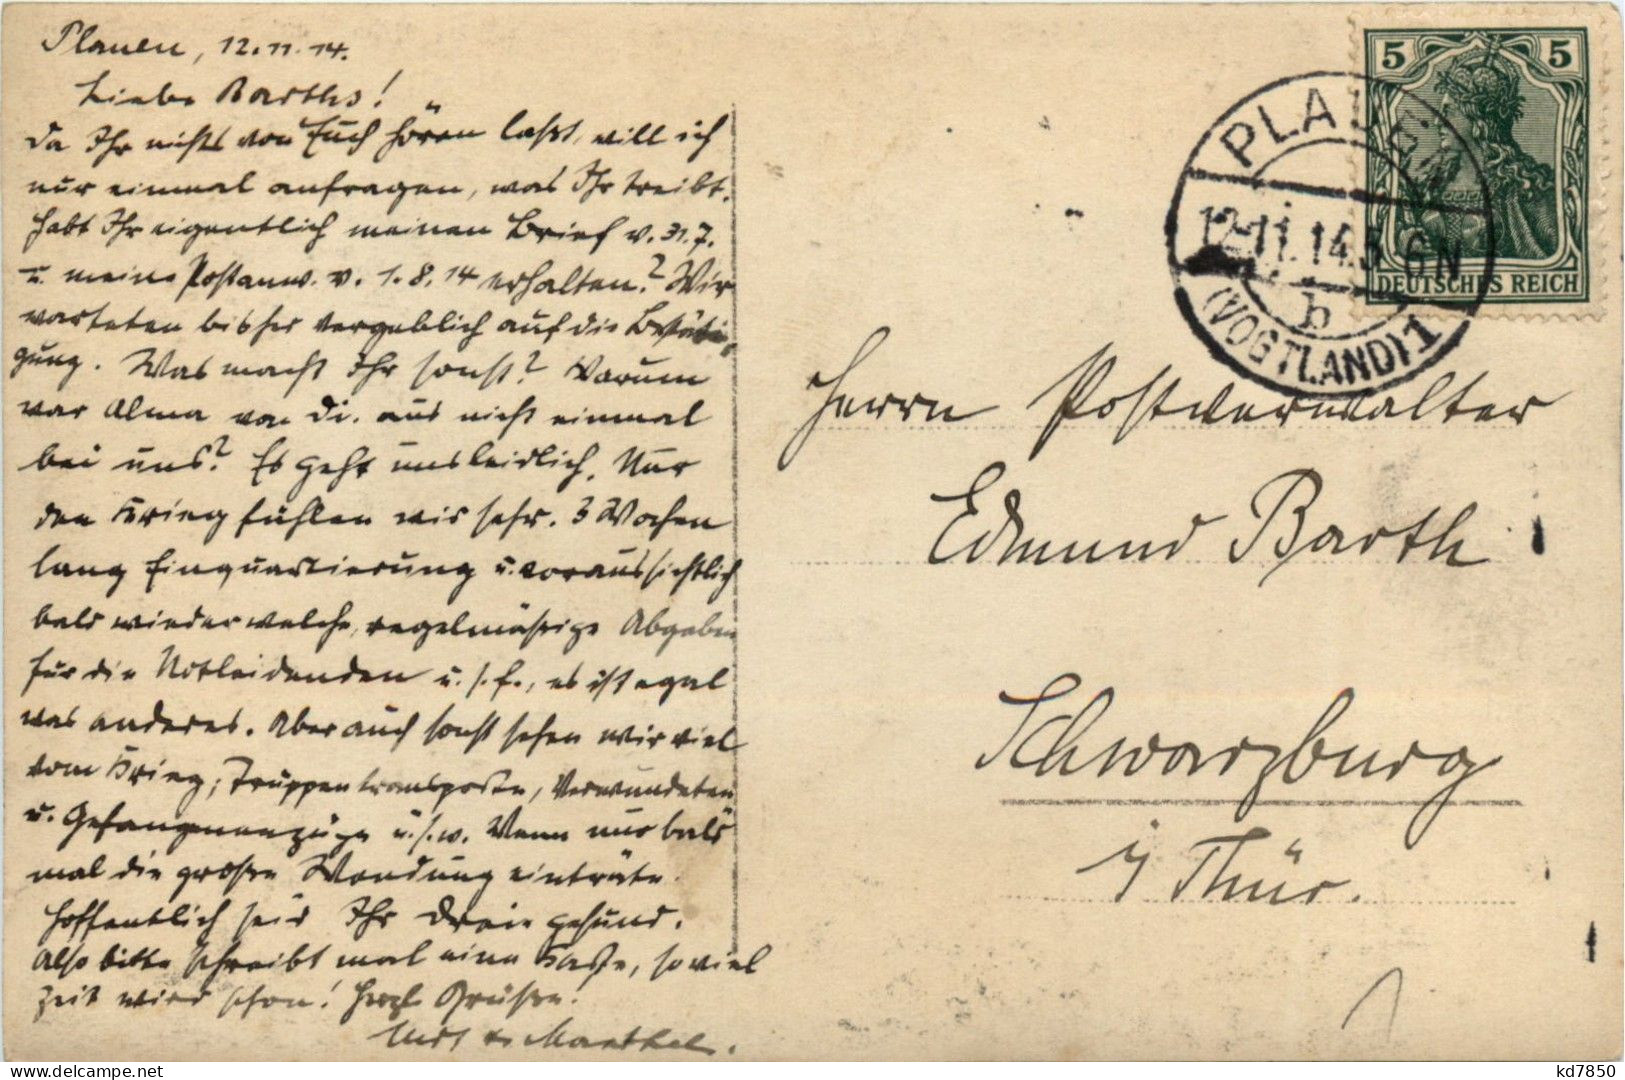 Plauen, 12.11.14.
Liebe Barths!
Da Ihr nichts von Euch hören laßt, will ich
nur einmal anfragen, was Ihr treibt.
Habt Ihr eigentlich meinen Brief v. 31.7.
u. meine Postanw. v. 1.8.14 erhalten? Wir
warteten bisher vergeblich auf die Bestäti-
gung. Was macht Ihr sonst? Warum
war Alma von Di. aus nicht einmal
bei uns? Es geht uns leidlich. Nur
den Krieg fühlen wir sehr. 3 Wochen
lang Einquartierung u. voraussichtlich
bald wieder welche, regelmäßige Abgaben
für die Notleidenden u.s.f., es ist egal
was anderes. Aber auch sonst sehen wir viel
vom Krieg; Truppentransporte, Verwundeten
u. Gefangenenzüge u.s.w. Wenn nur bald
mal die große Wendung einträte.
Hoffentlich seid Ihr Dreie gesund.
Also bitte schreibt mal eine Karte, so viel
Zeit wird schon! Herzl. Grüße.
Marthel.
5 5
DEUTSCHES REICH
PLAUEN
12.11.14.5-6N
b
(VOGTLAND) 1
Herrn Postverwalter
Edmund Barth
Schwarzburg
i/ Thür.
kd7850